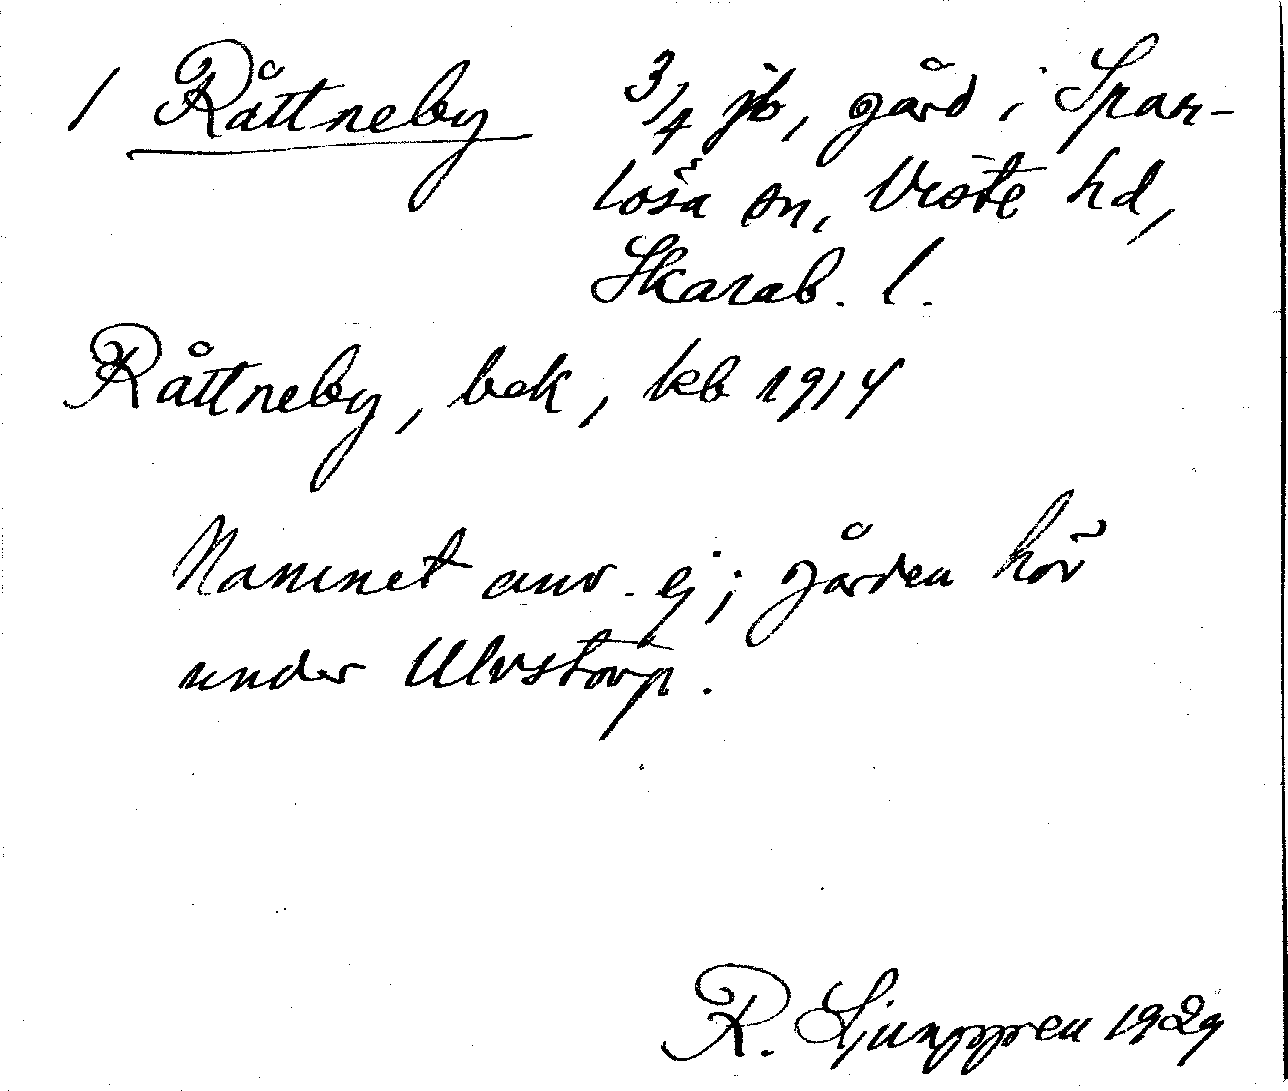 1 Råttneby 3/4 jb, gård i Spar-
lösa sn, Viste hd,
Skarab. l.
Råttneby, bek, kb 1914
Namnet anv. ej; gården hör
under Ulvstorp.
R. Ljunggren 1929